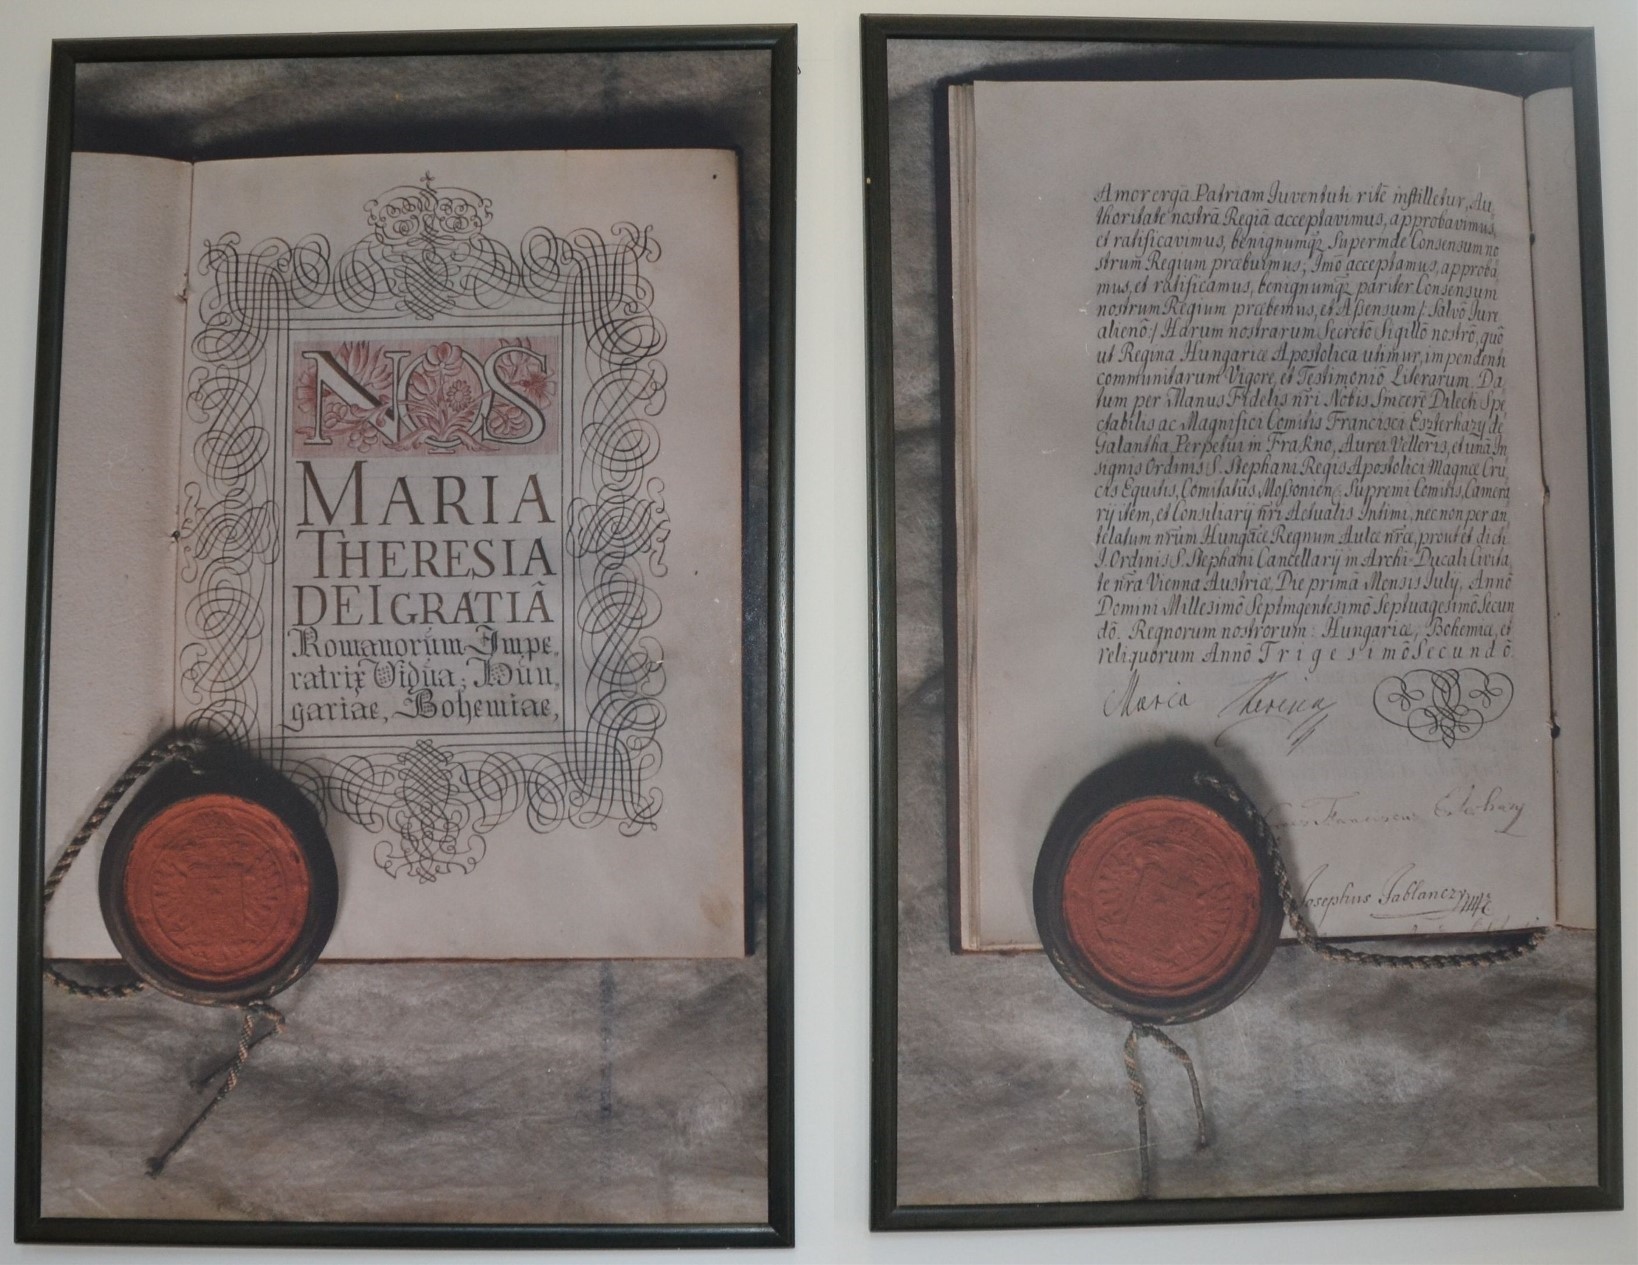 NOS
MARIA
THERESIA
DEI GRATIÃ
Romanorum Impe,
ratrix Vidua; Hun,
gariae, Bohemiae,
Amor ergã Patriam Juventuti ritè instilletur, Au,
thoritate nostrã Regiã acceptavimus, approbavimus,
et ratificavimus, benignumq̃ Superinde Consensum no
strum Regium præbuimus; Imò acceptamus, approba
mus, et ratificamus, benignumq̃ pariter Consensum
nostrum Regium præbemus, et Assensum / Salvõ Jure
alienõ / Harum nostrarum Secretõ Sigillõ nostrõ, quõ
ut Regina Hungariæ Apostolica utimur, impendenti
communitarum Vigore, et Testimoniõ Literarum. Da,
tum per Manus Fidelis nr̃i Nobis Sincerè Dilecti Spe
ctabilis ac Magnifici Comitis Francisci Eszterhazy de
Galantha, Perpetui in Frakno, Aurei Velleris, et unà In
signis Ordinis S. Stephani Regis Apostolici Magnæ Cru
cis Equitis, Comitatus Mosonien: Supremi Comitis, Camera
rij item, et Consiliarij nr̃i Actualis Intimi, nec non per an
telatum nr̃um Hungãce Regnum Aulæ nr̃æ, prout et dicti
I. Ordinis S. Stephani Cancellarij in Archi-Ducali Civita
te nr̃a Vienna Austriæ, Die primã Mensis July, Annõ
Domini Millesimõ Septingentesimõ Septuagesimõ Secun
dõ. Regnorum nostrorum: Hungariæ, Bohemiæ, et
reliquorum Annõ Trigesimõ Secundõ.
Maria Theresia
Franciscus Esterhazy
Josephus Jablanczy